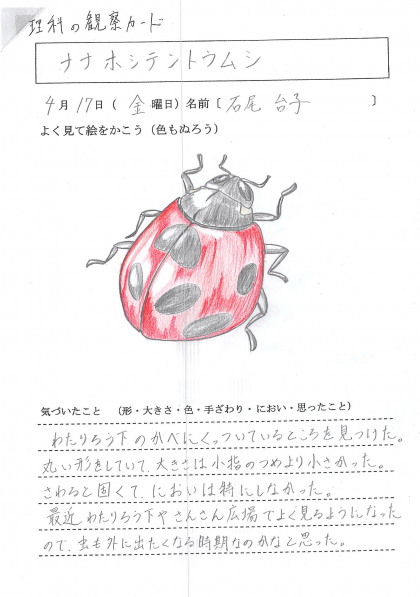 理科の観察カード
ナナホシテントウムシ
4月17日(金曜日)名前〔石尾 台子〕
よく見て絵をかこう(色もぬろう)
気づいたこと (形・大きさ・色・手ざわり・におい・思ったこと)
わたりろう下のかべにくっついているところを見つけた。
丸い形をしていて、大きさは小指のつめより小さかった。
さわると固くて、においは特にしなかった。
最近わたりろう下やさんさん広場でよく見るようになった
ので、虫も外に出たくなる時期なのかなと思った。